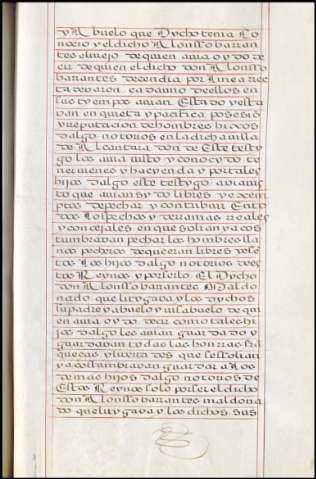 y Abuelo que Dicho tenia Co
nocio y el dicho Alonsso barran
tes el viejo de quien auia oydo de
cir de quien el dicho don Alonsso
barrantes decendia por linea rec
ta de varon cada uno dellos en
sus tyempos auian Estado y esta
van en quieta y pacifica posesio
y reputacion de hombres hijos
dalgo notorios en la dicha villa
de Alcantara donde Este testy
go los auia uisto y conocydo te
ner uienes y hacyenda y por tales
hijos dalgo este testygo auia uis
to que auian sydo libres y exemp
tos de pechar y contribuir En to
dos los pechos y derramas reales
y concejales en que solian y acos
tumbravan pechar los hombres lla
nos pecheros de que eran libres
los hijos dalgo notorios des
tos Reynos y por serlo El Dycho
don Alonsso barrantes Maldo
nado que lityGava y los dychos
su padre y abuelo y uisabuelo de qui
en auia oydo decir como tales hi
jos dalgo les auian guardado y
guardavan todas las honrras fra
quecas y livertades que se solian
y acostumbravan guardar a los
demas hijos dalgo notorios de
Estos Reynos solo por ser el dicho
don Alonsso barrantes maldona
do que lityGava y los dichos sus